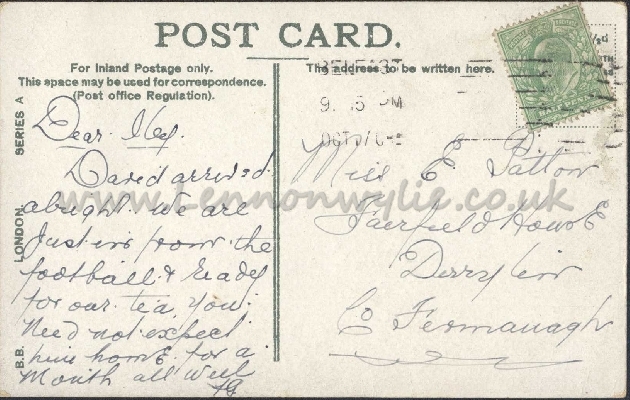 POST CARD.
For Inland Postage only.
This space may be used for correspondence.
(Post office Regulation).
The address to be written here.
BELFAST
9. 15 PM
OCT
½d
B.B. LONDON SERIES A
www.Lennonwylie.co.uk
Dear
David arrived
alright we are
Just in from the
football & ready
for our tea. You
Need not expect
him home for a
Month all well
Miss E
Fairfield House
Derrylin
Co Fermanagh